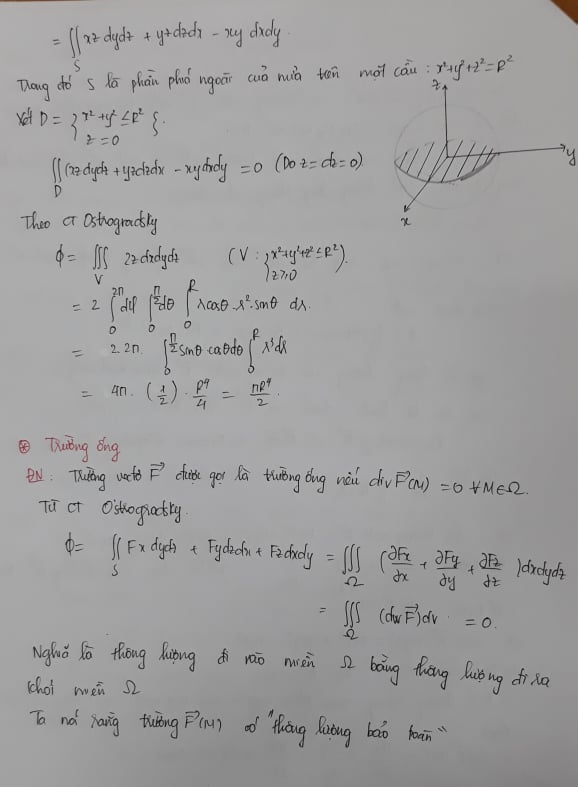 = ∬_S xz dydz + yz dzdx - xy dxdy.
Trong đó S là phần phía ngoài của nửa trên mặt cầu : x²+y²+z²=R²
Xét D = { x²+y² ≤ R² z=0 }.
z
y
x
∬_D (xz dydz + yz dzdx - xy dxdy = 0 (Do z = dz = 0)
Theo CT Ostrogradsky
ϕ = ∭_V 2z dxdydz (V : { x²+y²+z² ≤ R² z ≥ 0 ).
= 2 ∫_0^{2π} dφ ∫_0^{π/2} dθ ∫_0^R r cosθ . r² . sinθ dr.
= 2.2π. ∫_0^{π/2} sinθ . cosθ dθ ∫_0^R r³ dr
= 4π . (1/2) . R⁴/4 = πR⁴/2 .
⊛ Trường ống
ĐN: Trường vectơ F⃗ được gọi là trường ống nếu div F⃗(M) = 0 ∀M∈Ω.
Từ CT Ostrogradsky.
ϕ = ∬_S Fx dydz + Fy dzdx + Fz dxdy = ∭_Ω (∂Fx/∂x + ∂Fy/∂y + ∂Fz/∂z) dxdydz
= ∭_Ω (div F⃗) dv = 0.
Nghĩa là thông lượng đi vào miền Ω bằng thông lượng đi ra
khỏi miền Ω
Ta nói rằng trường F⃗(M) có "thông lượng bảo toàn"